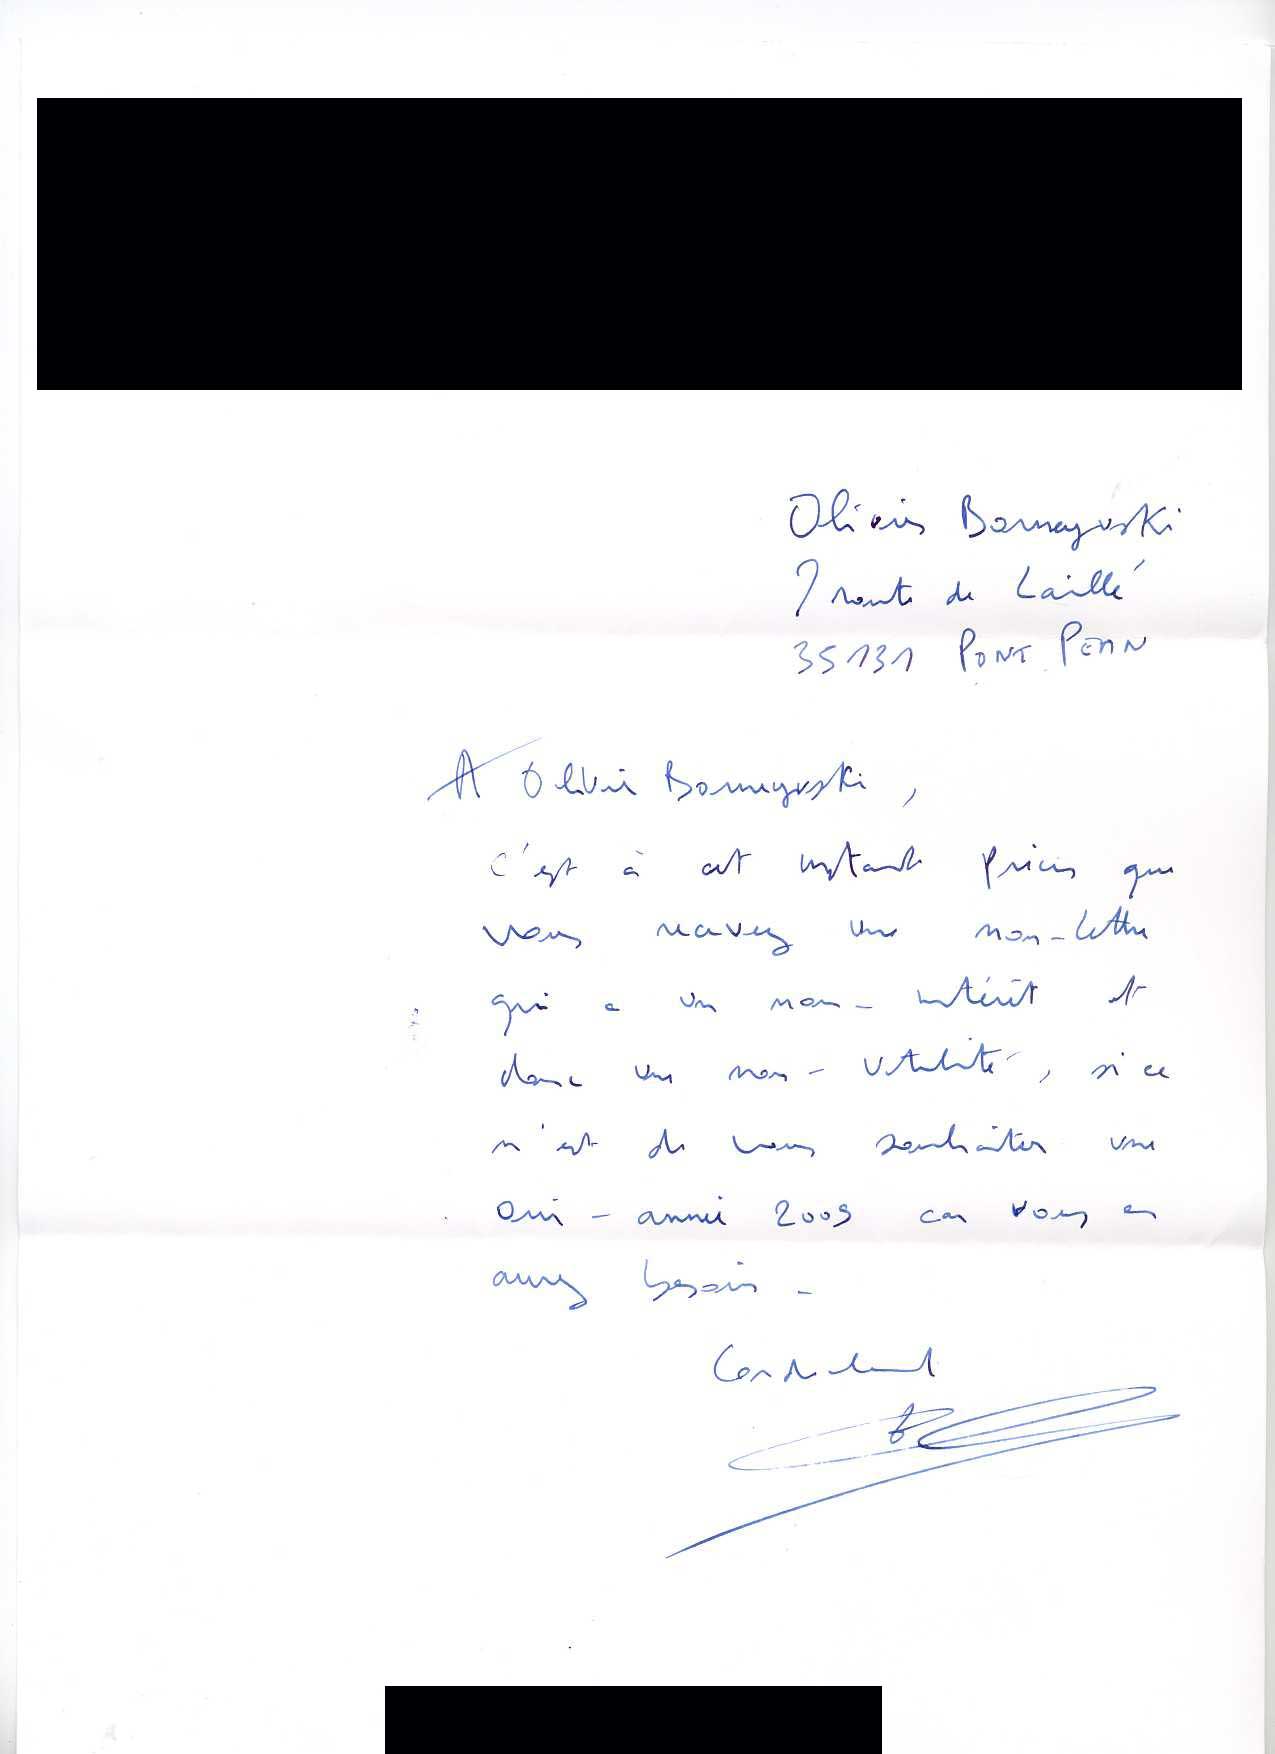 Olivier Bornayvski
7 route de Laillé
35131 PONT PEAN
A Olivier Bornayvski,
c'est à cet instant précis que
vous recevez une non-lettre
qui a un non-intérêt et
donc une non-utilité, si ce
n'est de vous souhaiter une
oui-année 2009 car vous en
aurez besoin.
Cordialement